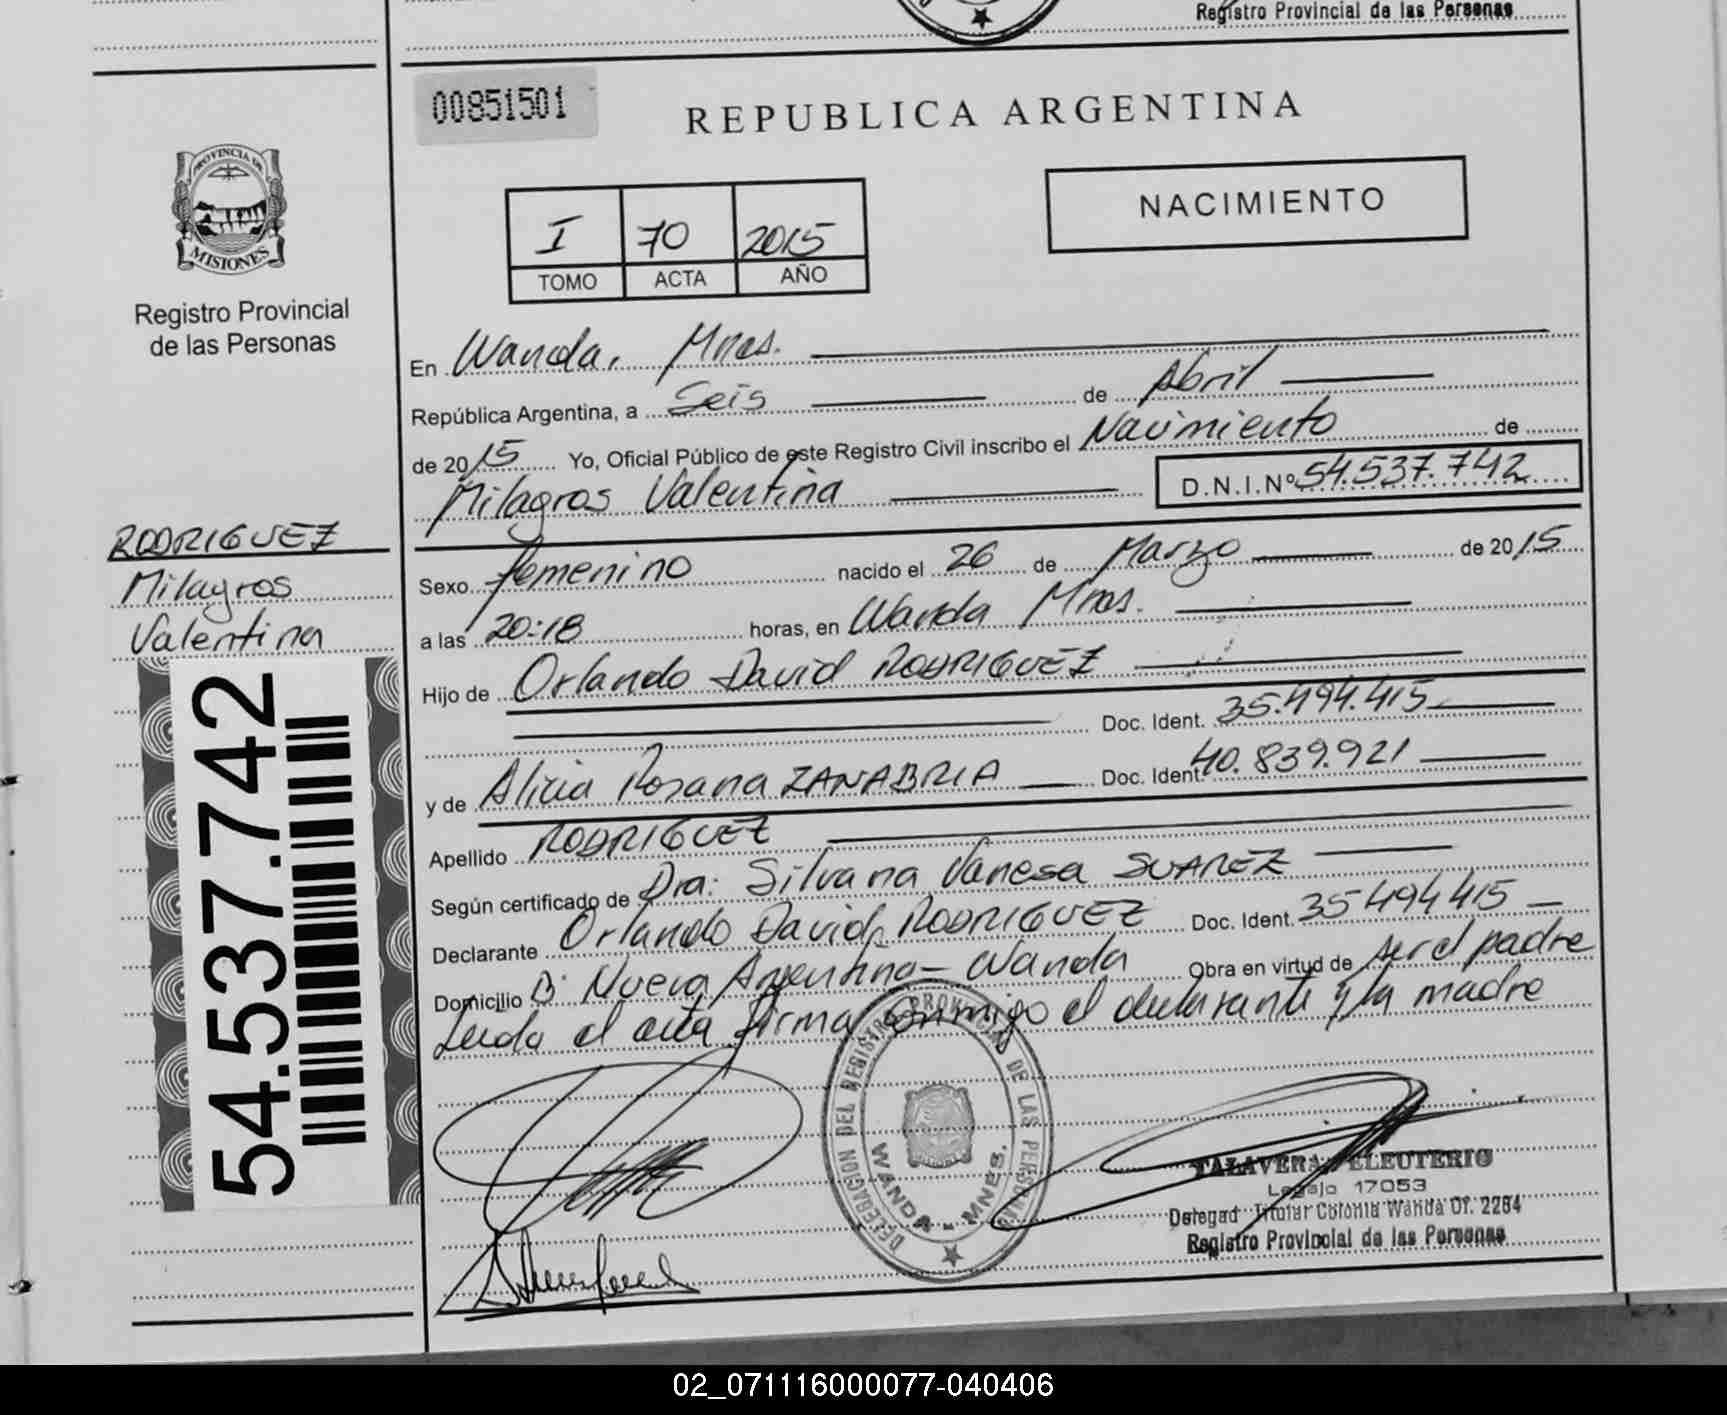 Registro Provincial de las Personas
00851501
REPUBLICA ARGENTINA
NACIMIENTO
I 70 2015
TOMO ACTA AÑO
PROVINCIA DE
MISIONES
Registro Provincial
de las Personas
En Wanda, Mnes.
República Argentina, a Seis de Abril
de 2015 Yo, Oficial Público de este Registro Civil inscribo el Nacimiento de
Milagros Valentina D.N.I.Nº 54.537.742
RODRIGUEZ
Milagros
Valentina
54.537.742
Sexo femenino nacido el 26 de Marzo de 2015
a las 20:18 horas, en Wanda Mnes.
Hijo de Orlando David RODRIGUEZ
Doc. Ident. 35.494.415
y de Alicia Rosana ZANABRIA Doc. Ident. 40.839.921
Apellido RODRIGUEZ
Según certificado de Dra: Silvana Vanesa SUAREZ
Declarante Orlando David RODRIGUEZ Doc. Ident. 35494415
Domicilio Bº Nueva Argentina - Wanda Obra en virtud de ser el padre
Leida el acta firma conmigo el declarante y la madre
DELEGACION DEL REGISTRO PROVINCIAL DE LAS PERSONAS
WANDA - MNES.
TALAVERA ELEUTERIO
Legajo 17053
Delegad Titular Colonia Wanda Of. 2284
Registro Provincial de las Personas
02_071116000077-040406